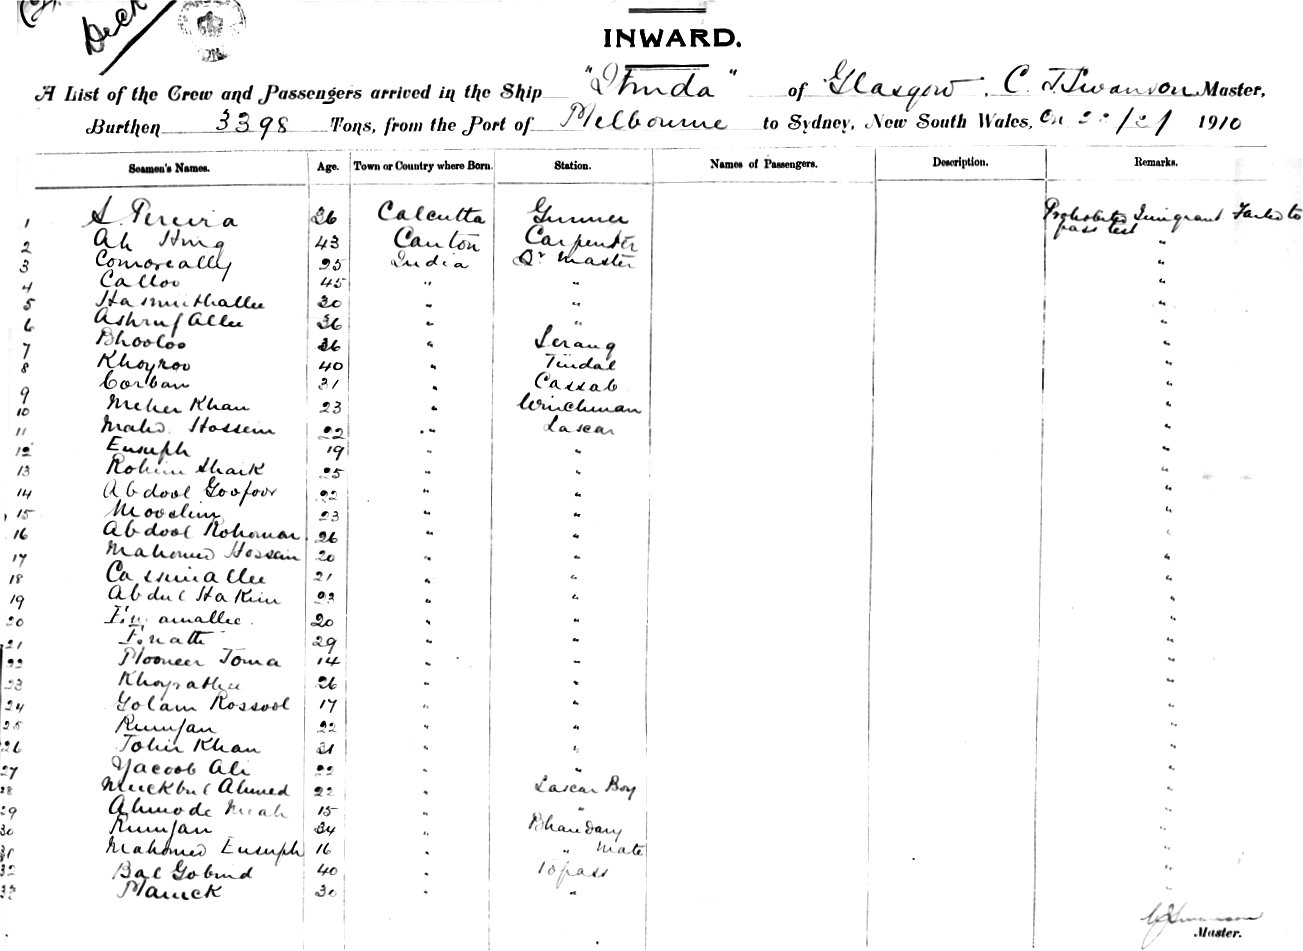 Deck
INWARD.
A List of the Crew and Passengers arrived in the Ship "Itinda" of Glasgow, C. J. Swanson Master,
Burthen 3398 Tons, from the Port of Melbourne to Sydney, New South Wales, On 22/2/ 1910
Seamen's Names. Age. Town or Country where Born. Station. Names of Passengers. Description. Remarks.
1 S. Pereira 36 Calcutta Gunner Prohibited Immigrant Failed to pass test
2 Ah Hing 43 Canton Carpenter "
3 Comoreally 25 India Qr Master "
4 Calloo 45 " " "
5 Hasmuthallee 30 " " "
6 Ashruf Allee 36 " " "
7 Bhooloo 36 " Serang "
8 Khoyroo 40 " Tindal "
9 Corban 31 " Cassab "
10 Meher Khan 23 " Winchman "
11 Mahd. Hossein 22 " Lascar "
12 Eusuph 19 " " "
13 Rohim Shaik 25 " " "
14 Abdool Goofoor 22 " " "
15 Mooslim 23 " " "
16 Abdool Rohoman 26 " " "
17 Mahomed Hossein 20 " " "
18 Cassimallee 21 " " "
19 Abdul Hakim 23 " " "
20 amallee. 20 " " "
21 29 " " "
22 Mooneer Toma 14 " " "
23 Khoyrathee 26 " " "
24 Golam Rossool 17 " " "
25 Rumjan 22 " " "
26 Tohir Khan 31 " " "
27 Yacoob Ali 22 " " "
28 Muckbul Ahmed 22 " Lascar Boy "
29 Ahmode Meah 15 " " "
30 Rumjan 34 " Bhandary "
31 Mahomed Eusuph 16 " " Mate "
32 Bal Gobind 40 " Topass "
33 Manick 30 " " "
C J Swanson
Master.